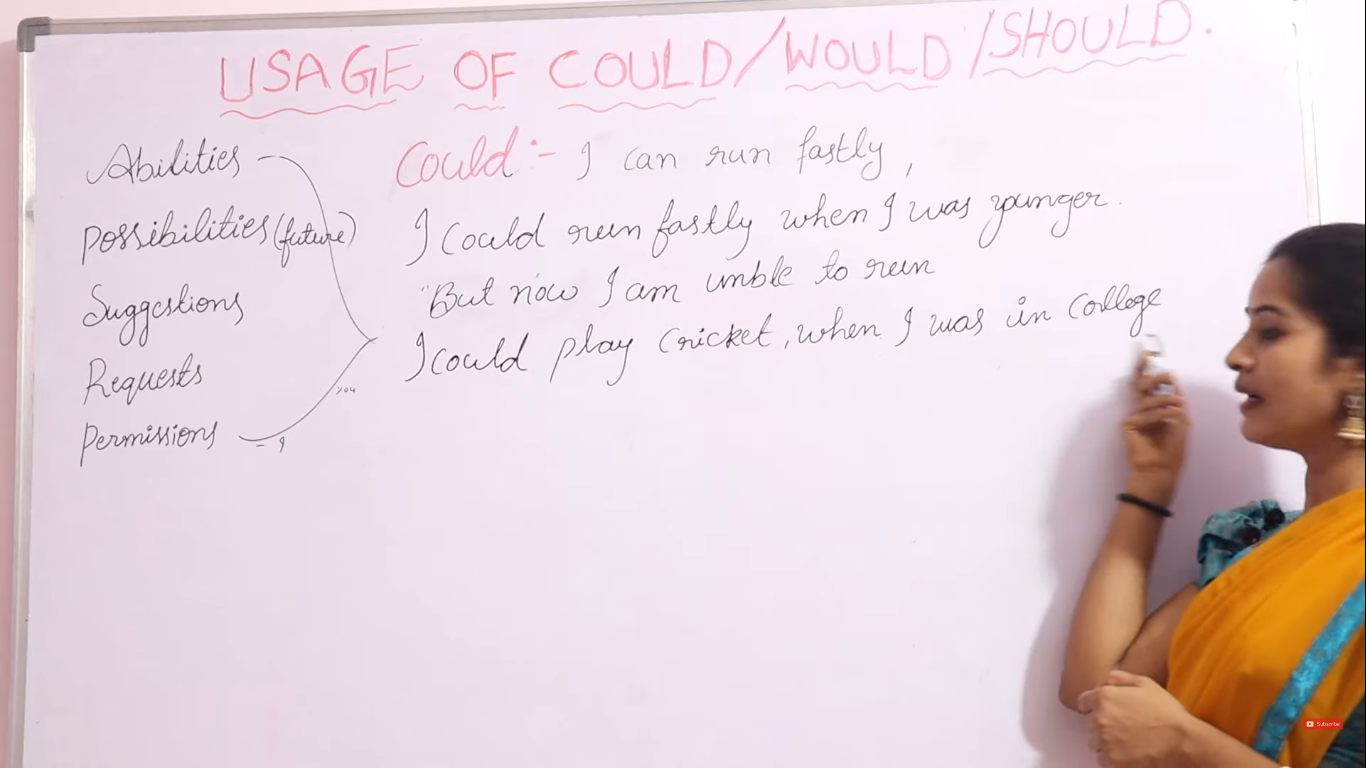 USAGE OF COULD/WOULD/SHOULD.
Abilities
possibilities (future)
Suggestions
Requests
permissions
- I
you
Could:- I can run fastly,
I could run fastly when I was younger.
"But now I am unble to run
I could play cricket, when I was in college
Subscribe